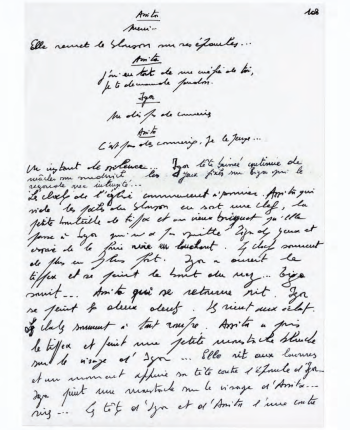 Anita 102
Merci...
Elle remet le blouson sur ses épaules...
Anita
J'ai eu tort de me méfier de toi,
je te demande pardon.
Igor
Ne dis pas de conneries
Anita
C'est pas des conneries, je le jure...
Un instant de silence... Igor tête baissée continue de
les yeux fixés sur Igor qui le
regarde
Le clocher de l'église commence à sonner. Anita qui
vide les poches du blouson en sort une clef, la
petite bouteille de tipex et un vieux briquet qu'elle
passe à Igor qui
de le faire rire en louchant. Le clocher sonnent
de plus en plus fort. Igor a ouvert le
tippex et se peint le bout du nez... Igor
sourit... Anita qui se retourne rit. Igor
se peint les deux Ils rient aux éclats.
sonnent à tout rompre. Anita a pris
le tippex et peint une petite moustache blanche
sur le visage d'Igor... Elle rit aux larmes
et un moment appuie sa tête contre l'épaule d'Igor
Igor peint une moustache sur le visage d'Anita...
rires... La tête d'Igor et d'Anita l'une contre